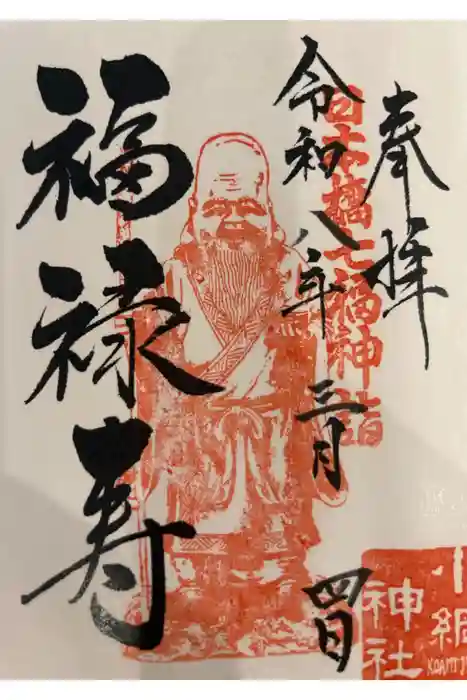 奉拝
日本橋七福神詣
令和八年三月四日
福禄寿
小網
神社
KOAMI J